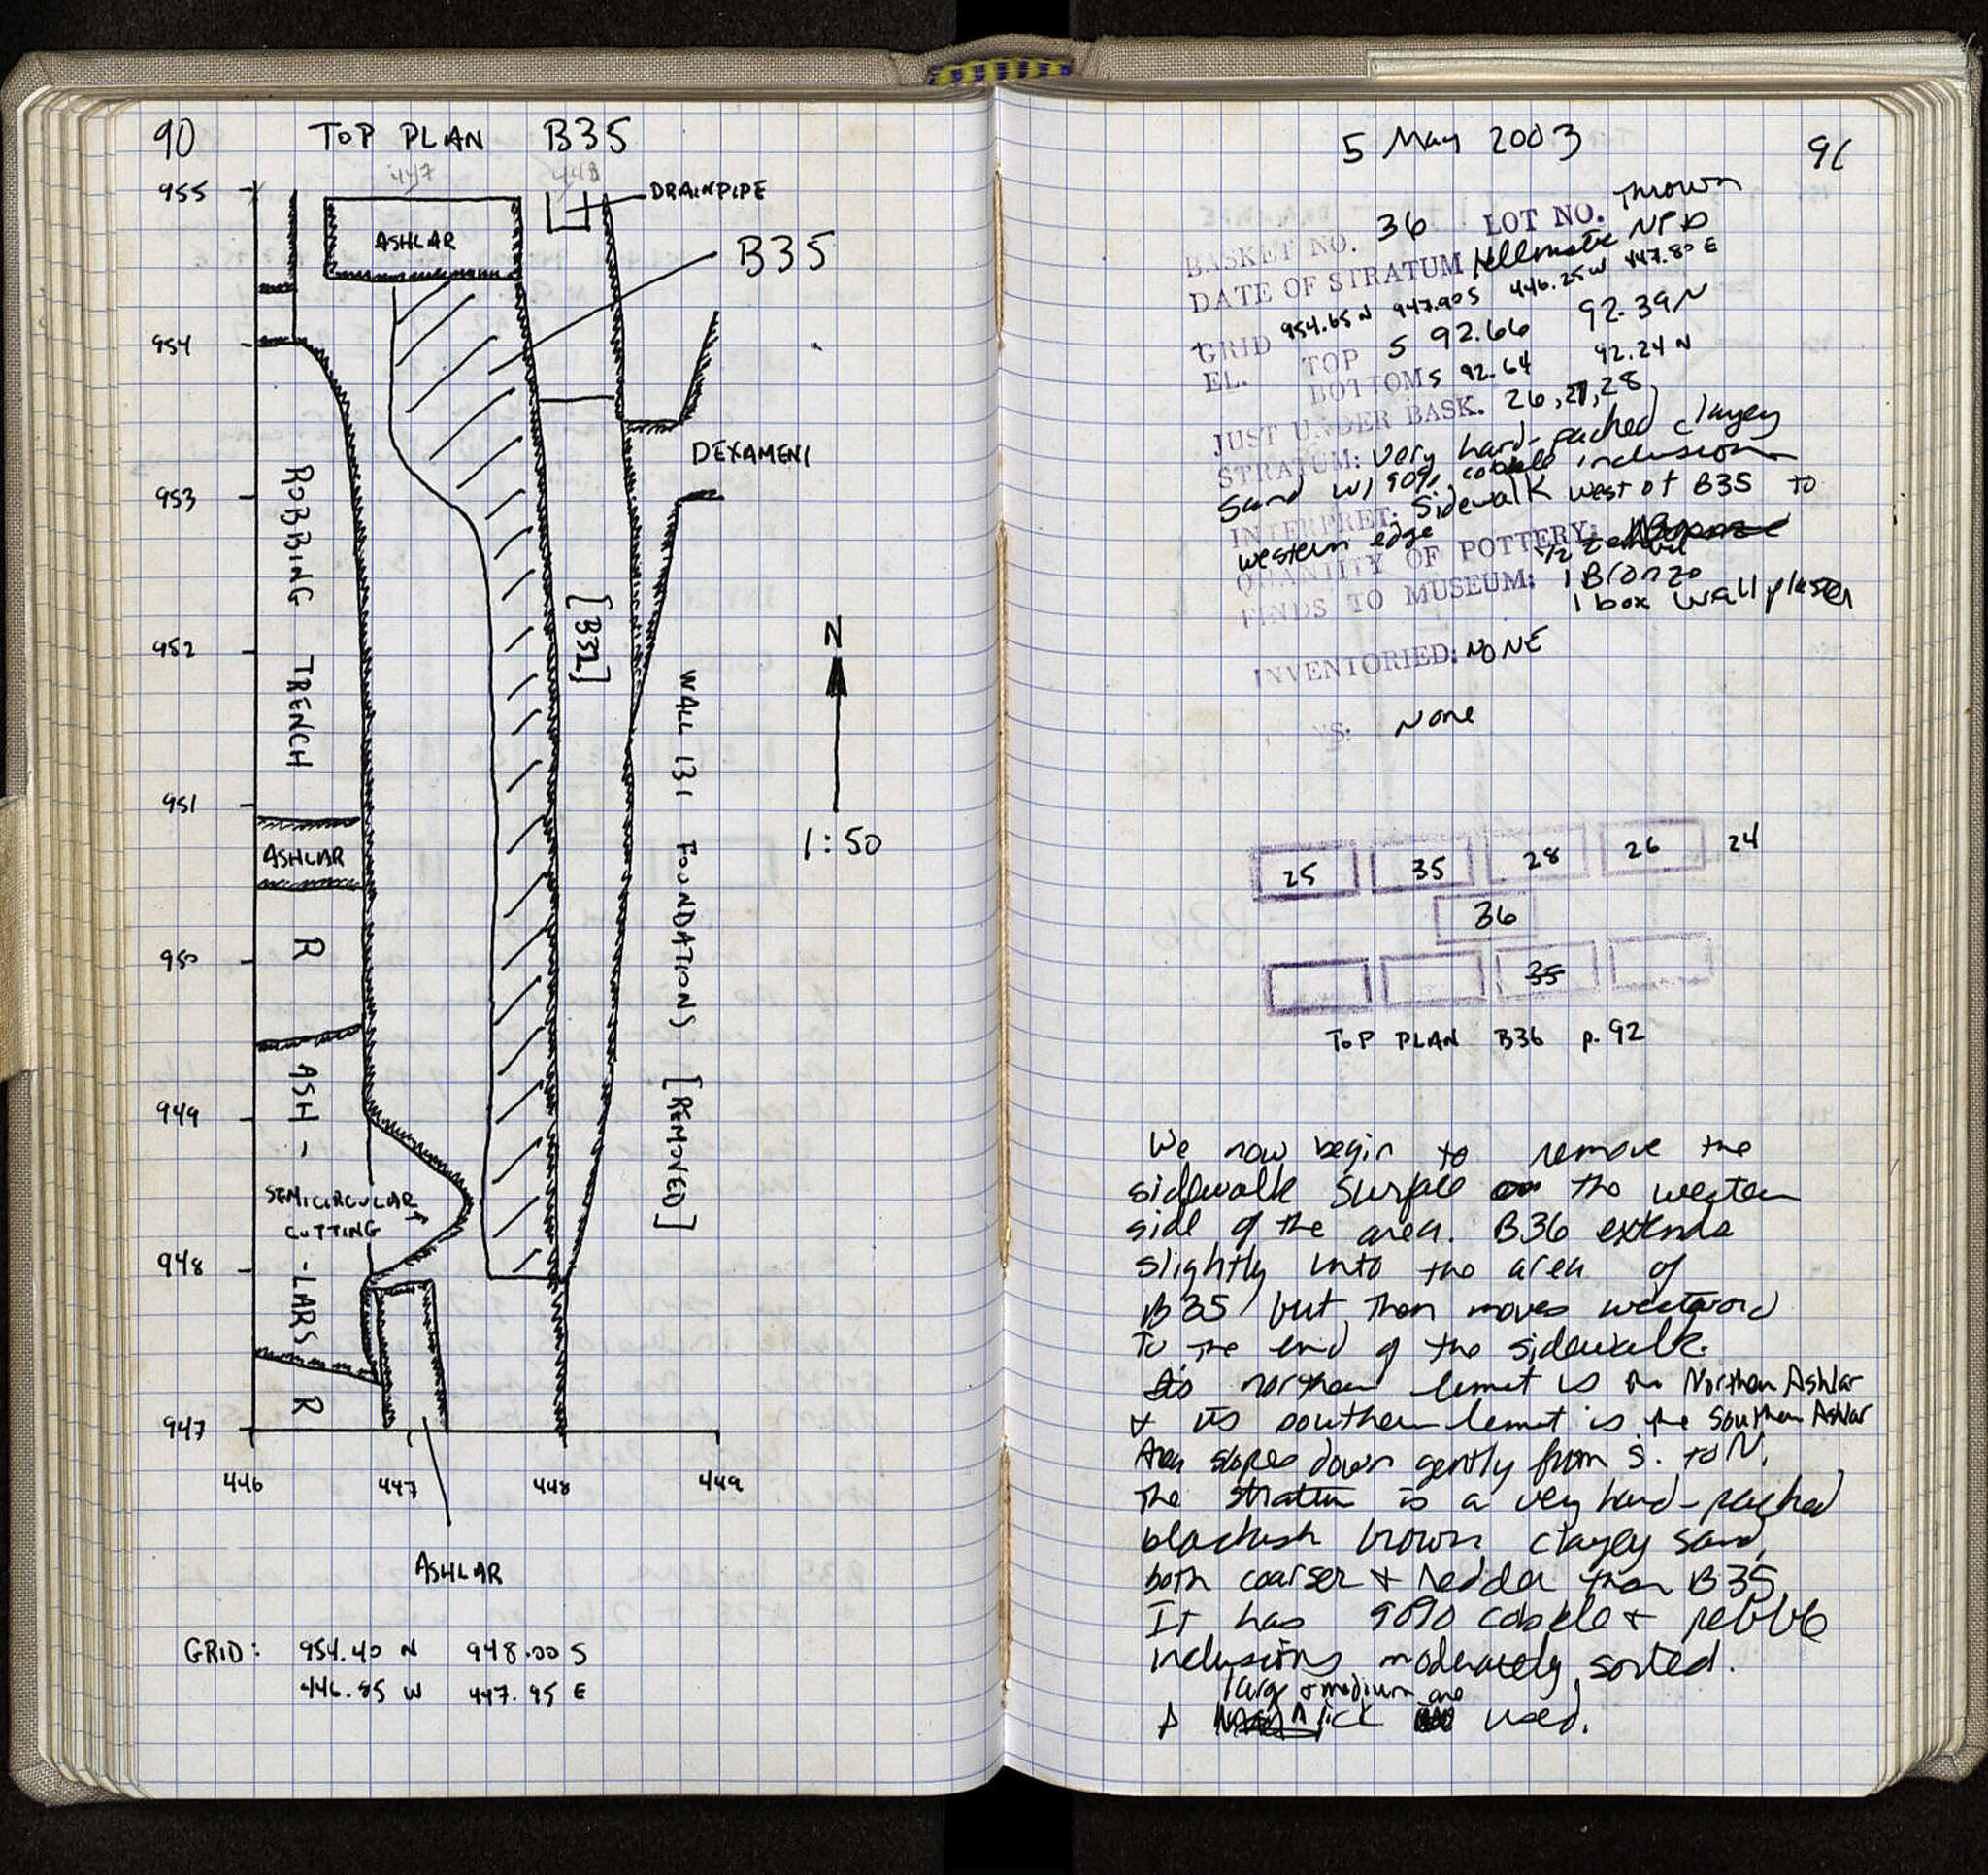 90 TOP PLAN B35
447 448
955
DRAINPIPE
ASHLAR
B35
954
DEXAMENI
953
ROBBING TRENCH
[B32]
952
N
WALL 131 FOUNDATIONS [REMOVED]
951
1:50
ASHLAR
R
950
ASH-
949
SEMICIRCULAR
CUTTING
948
-LARS
R
947
446 447 448 449
ASHLAR
GRID: 954.40 N 948.00 S
446.85 W 447.95 E
5 May 2003 91
BASKET NO. 36 LOT NO. Thrown
DATE OF STRATUM Hellenistic NPD
GRID 954.65 N 947.90 S 446.25 W 447.80 E
EL. TOP S 92.66 92.39 N
BOTTOM S 92.64 92.24 N
JUST UNDER BASK. 26, 27, 28
STRATUM: Very hard-packed clayey
Sand w/ 90% cobble inclusions
INTERPRET: Sidewalk west of B35 to
western edge
QUANTITY OF POTTERY: 1/2 zembil
FINDS TO MUSEUM: 1 Bronze
1 box wall plaster
INVENTORIED: NONE
NS: None
25 35 28 26 24
36
35
TOP PLAN B36 p. 92
We now begin to remove the
sidewalk surface on the western
side of the area. B36 extends
slightly into the area of
B35, but then moves westward
to the end of the sidewalk.
Its northern limit is the Northern Ashlar
& its southern limit is the Southern Ashlar
Area slopes down gently from S. to N.
The stratum is a very hard-packed
blackish brown clayey sand,
both coarser & redder than B35.
It has 90% cobble & pebble
inclusions moderately sorted.
large & medium are
A pick used.